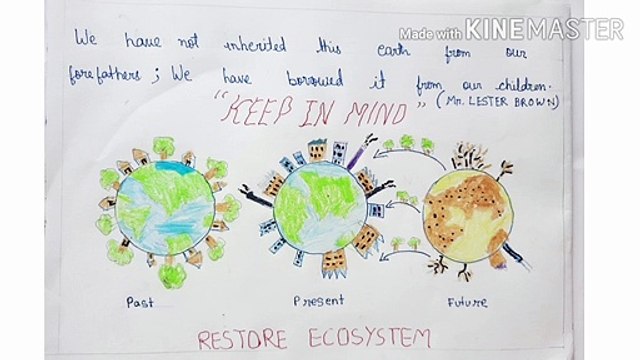 Made with KINEMASTER
We have not inherited this earth from our
forefathers ; We have borrowed it from our children.
"KEEP IN MIND" (Mr. LESTER BROWN)
Past Present Future
RESTORE ECOSYSTEM